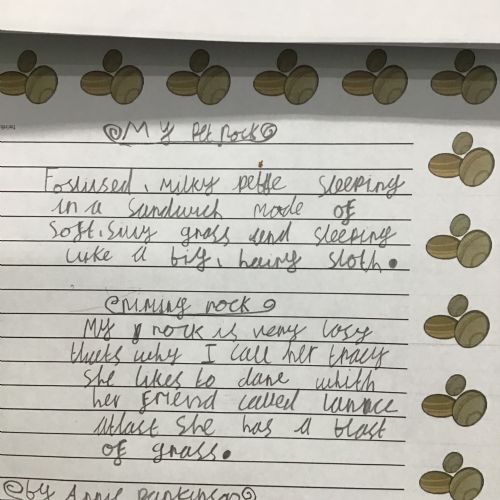 My Pet Rock
Fossised, milky peble sleeping
in a sandwich made of
soft, silly grass and sleeping
like a big, hairy sloth.
riming rock
My rock is very lasy
thats why I call her tracy
she likes to dane whith
her friend called
atlast she has a blast
of grass.
by Annie Parkinson